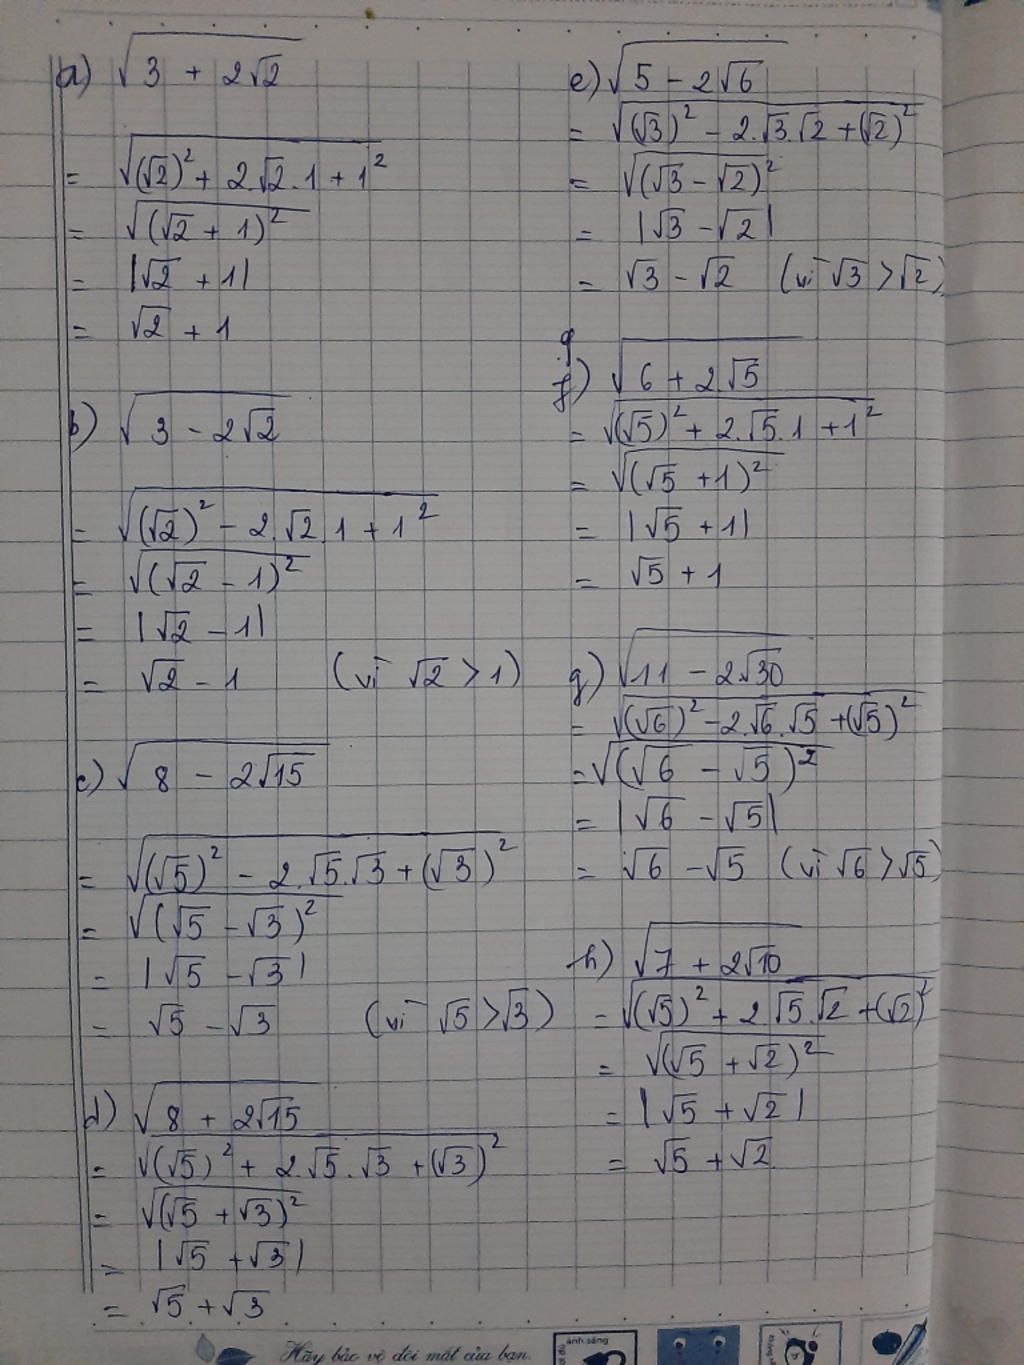 a) √(3 + 2√2)
= √((√2)² + 2.√2.1 + 1²)
= √((√2 + 1)²)
= |√2 + 1|
= √2 + 1
b) √(3 - 2√2)
= √((√2)² - 2.√2.1 + 1²)
= √((√2 - 1)²)
= |√2 - 1|
= √2 - 1 (vì √2 > 1)
c) √(8 - 2√15)
= √((√5)² - 2.√5.√3 + (√3)²)
= √((√5 - √3)²)
= |√5 - √3|
= √5 - √3 (vì √5 > √3)
d) √(8 + 2√15)
= √((√5)² + 2.√5.√3 + (√3)²)
= √((√5 + √3)²)
= |√5 + √3|
= √5 + √3
e) √(5 - 2√6)
= √((√3)² - 2.√3.√2 + (√2)²)
= √((√3 - √2)²)
= |√3 - √2|
= √3 - √2 (vì √3 > √2)
f) √(6 + 2√5)
= √((√5)² + 2.√5.1 + 1²)
= √((√5 + 1)²)
= |√5 + 1|
= √5 + 1
g) √(11 - 2√30)
= √((√6)² - 2.√6.√5 + (√5)²)
= √((√6 - √5)²)
= |√6 - √5|
= √6 - √5 (vì √6 > √5)
h) √(7 + 2√10)
= √((√5)² + 2√5.√2 + (√2)²)
= √((√5 + √2)²)
= |√5 + √2|
= √5 + √2
Hãy bảo vệ đôi mắt của bạn.
ánh sáng